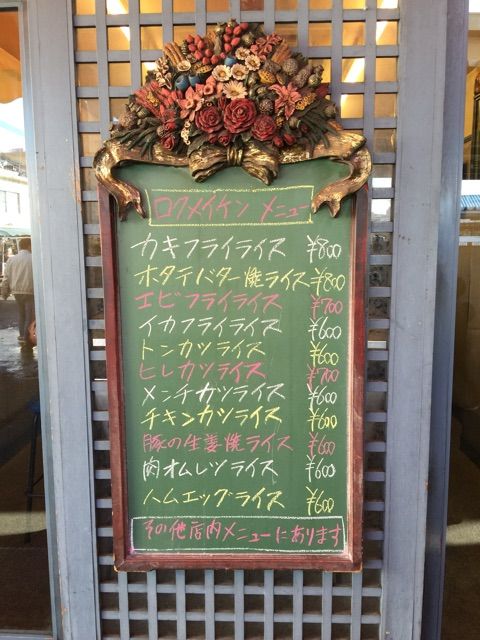 ロクメイケン メニュー
カキフライライス ¥800
ホタテバター焼ライス ¥800
エビフライライス ¥700
イカフライライス ¥600
トンカツライス ¥600
ヒレカツライス ¥700
メンチカツライス ¥600
チキンカツライス ¥600
豚の生姜焼ライス ¥600
肉オムレツライス ¥600
ハムエッグライス ¥600
その他店内メニューにあります